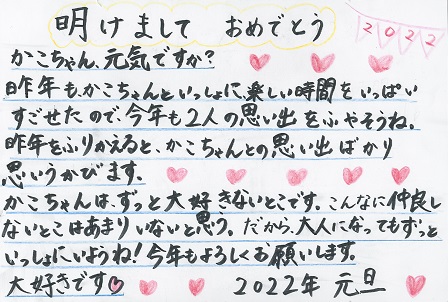 明けまして おめでとう
2022
かこちゃん、元気ですか？
昨年も、かこちゃんといっしょに楽しい時間をいっぱい
すごせたので、今年も2人の思い出をふやそうね。
昨年をふりかえると、かこちゃんとの思い出ばかり
思いうかびます。
かこちゃんは、ずっと大好きないとこです。こんなに仲良し
ないとこはあまりいないと思う。だから、大人になってもずっと
いっしょにいようね！今年もよろしくお願いします。
大好きです♡ 2022年 元旦